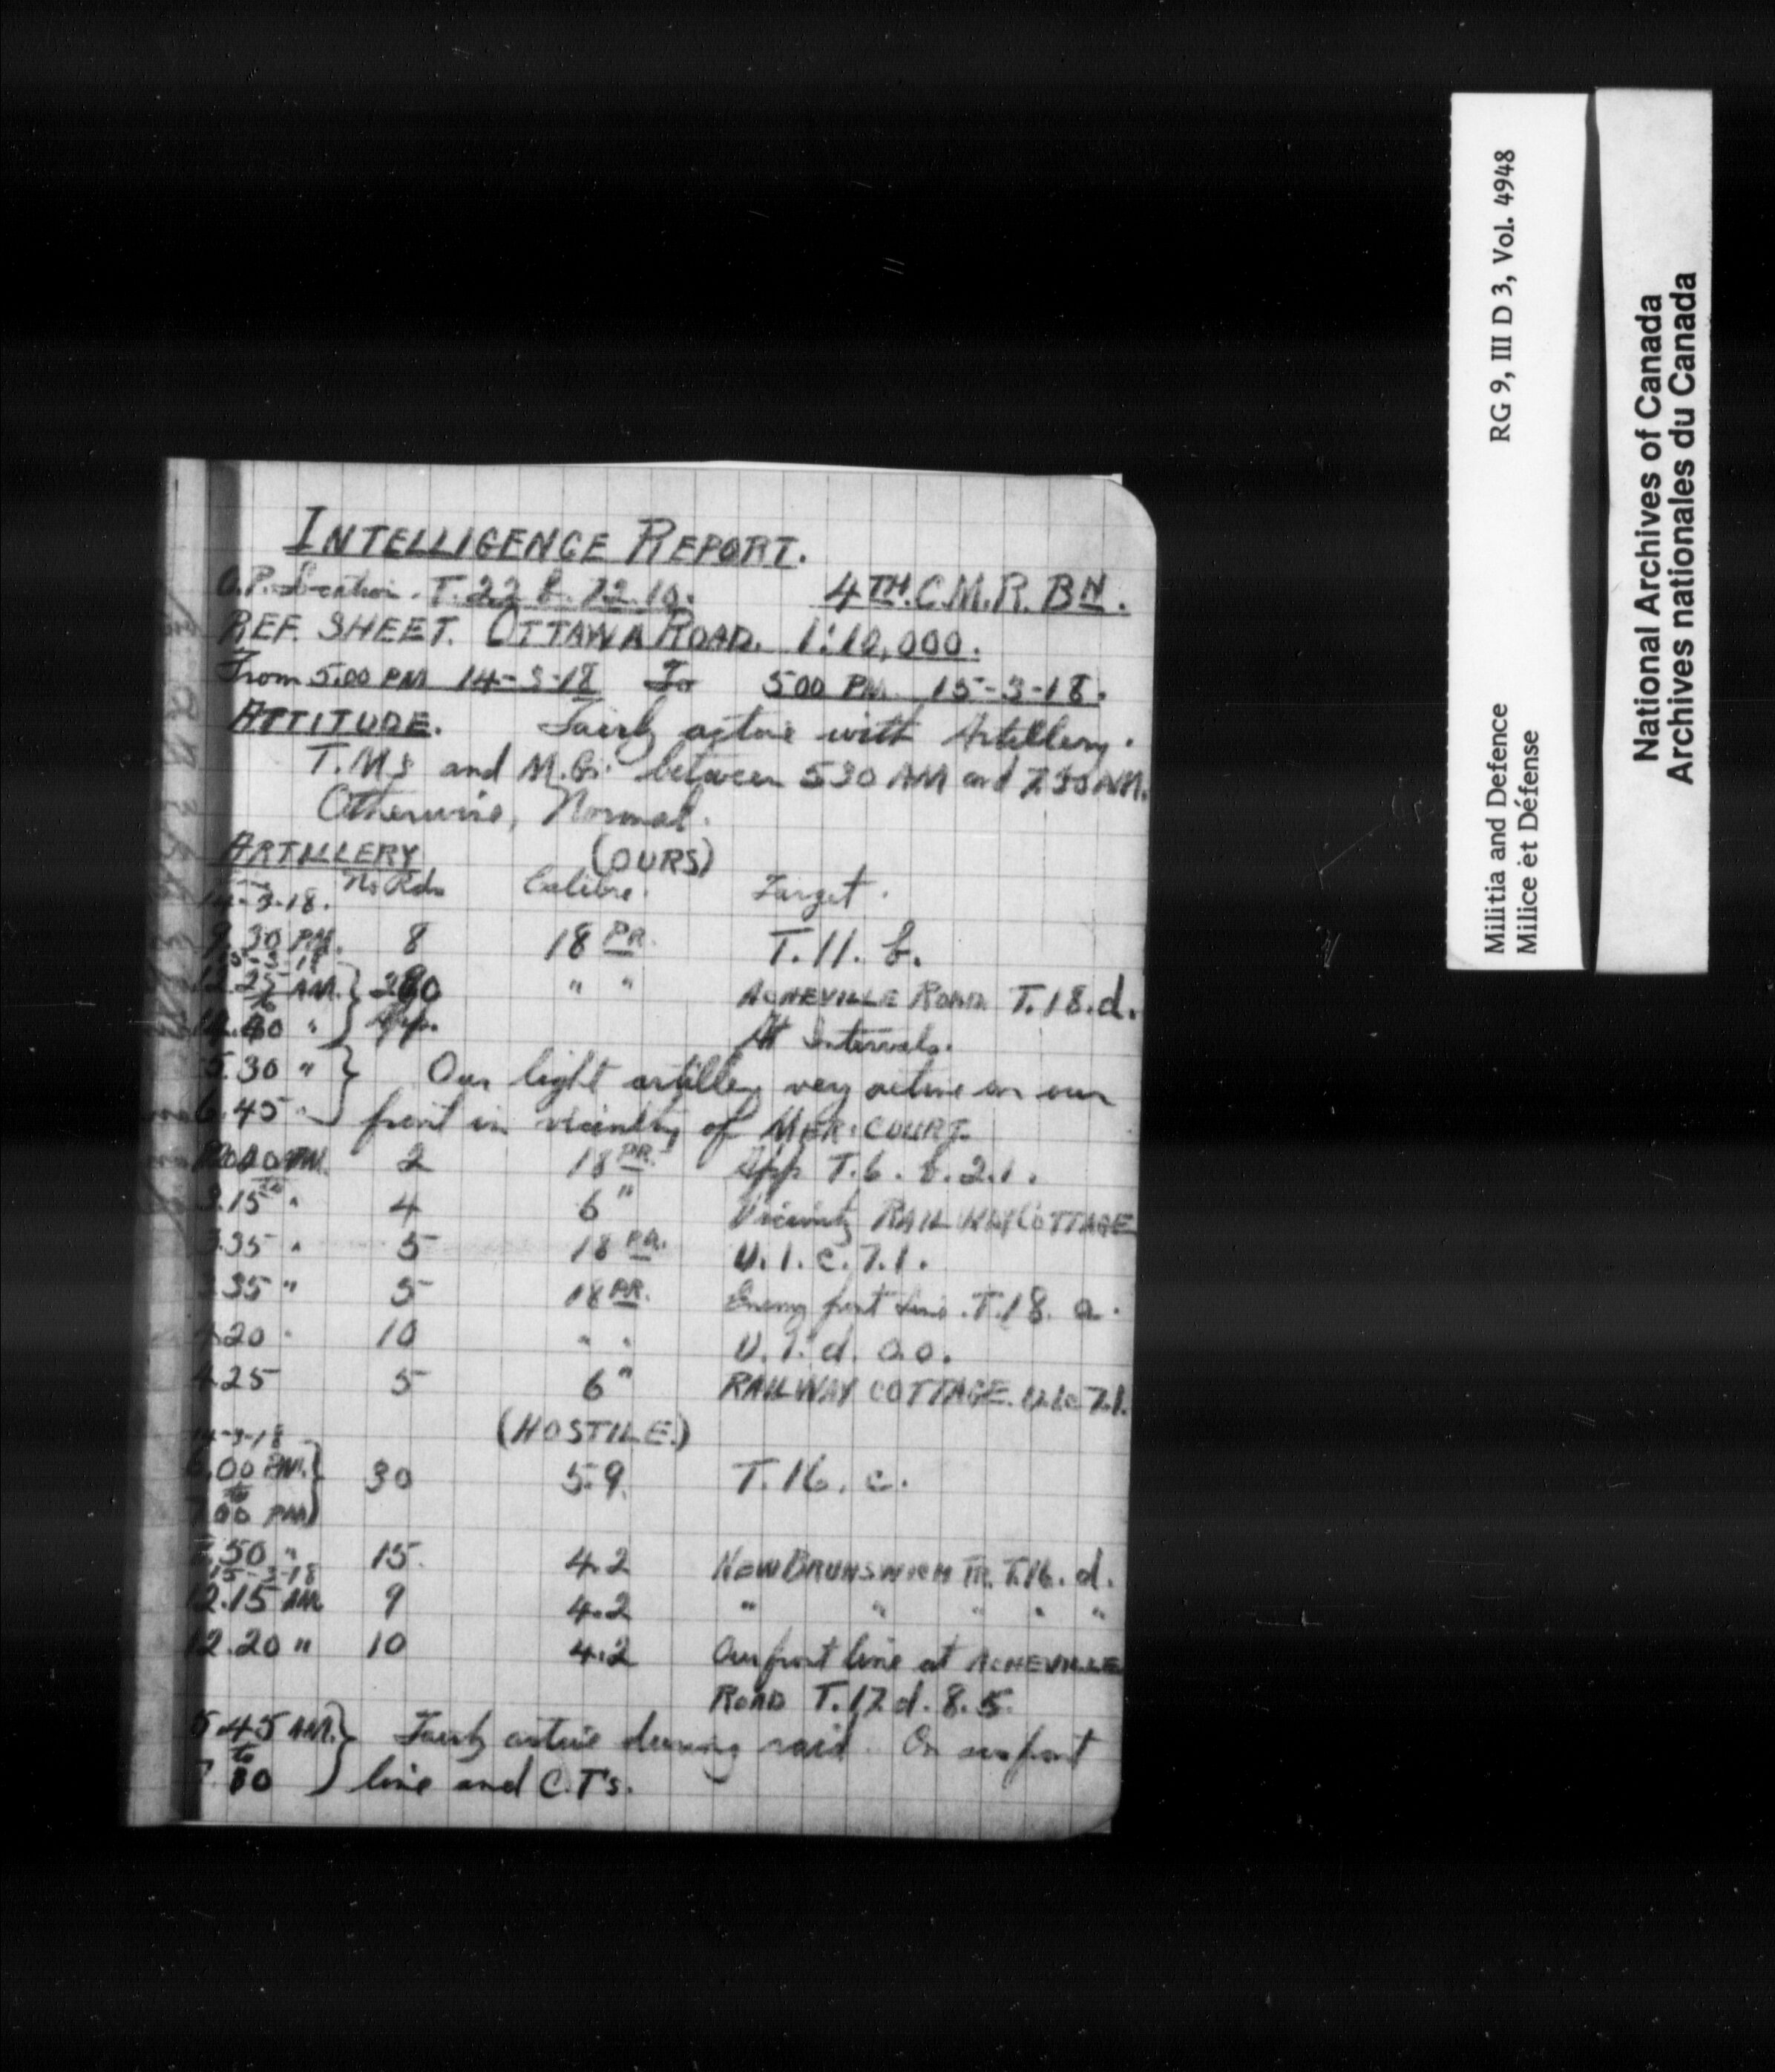 INTELLIGENCE REPORT.
O.P. Location. T.22 b. 72.10. 4TH. C.M.R. BN.
REF. SHEET. OTTAWA ROAD. 1:10,000.
From 5.00 PM 14-3-18 To 5.00 PM. 15-3-18.
ATTITUDE. Fairly active with Artillery.
T.M's and M.G's between 5 30 AM and 7.30 AM.
Otherwise, Normal.
ARTILLERY (OURS)
No Rds Calibre. Target.
14-3-18.
9.30 PM. 8 18 PR. T.11. b.
15-3-18
12.25 AM. " " ACHEVILLE ROAD T.18.d.
to
" App. At Intervals.
5.30 " Our light artillery very active on our
6.45 " front in vicinity of MERICOURT.
2 18 PR. App T.6. b. 2.1.
3.15 " 4 6" Vicinity RAILWAY COTTAGE
3.35 " 5 18 PR. U.1.c.7.1.
3.35 " 5 18 PR. Enemy front line. T.18. a.
4.20 " 10 " " U.1.d. 0.0.
4.25 5 6" RAILWAY COTTAGE. U.1.c 7.1.
(HOSTILE.)
14-3-18
6.00 PM. 30 5.9. T.16. c.
to
7.00 PM
7.50 " 15. 4.2 NEW BRUNSWICK TR. T.16. d.
15-3-18
12.15 AM 9 4.2 " " " " "
12.20 " 10 4.2 Our front line at ACHEVILLE
ROAD T.17.d. 8.5.
5.45 AM. Fairly active during raid. On our front
to
line and C.T's.
RG 9, III D 3, Vol. 4948
Militia and Defence
Milice et Défense
National Archives of Canada
Archives nationales du Canada